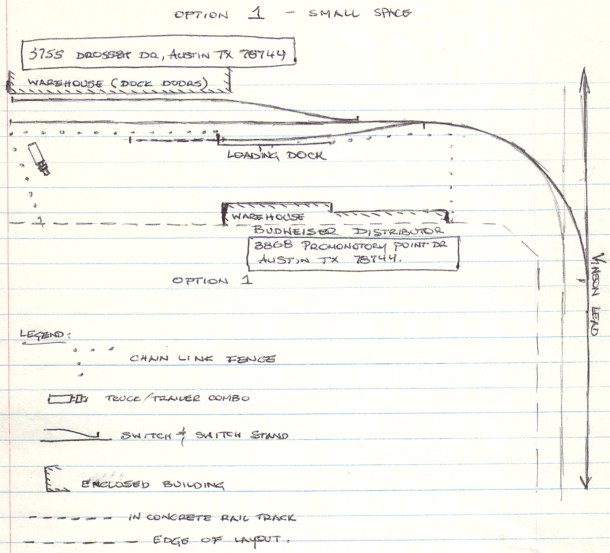 OPTION 1 - SMALL SPACE
3755 DROSSET DR, AUSTIN TX 78744
WAREHOUSE (DOCK DOORS)
LOADING DOCK
WAREHOUSE
BUDWEISER DISTRIBUTOR
3868 PROMONOTORY POINT DR
AUSTIN TX 78744.
OPTION 1
VINSON LEAD
LEGEND:
CHAIN LINK FENCE
TRUCK/TRAILER COMBO
SWITCH & SWITCH STAND
ENCLOSED BUILDING
IN CONCRETE RAIL TRACK
EDGE OF LAYOUT.